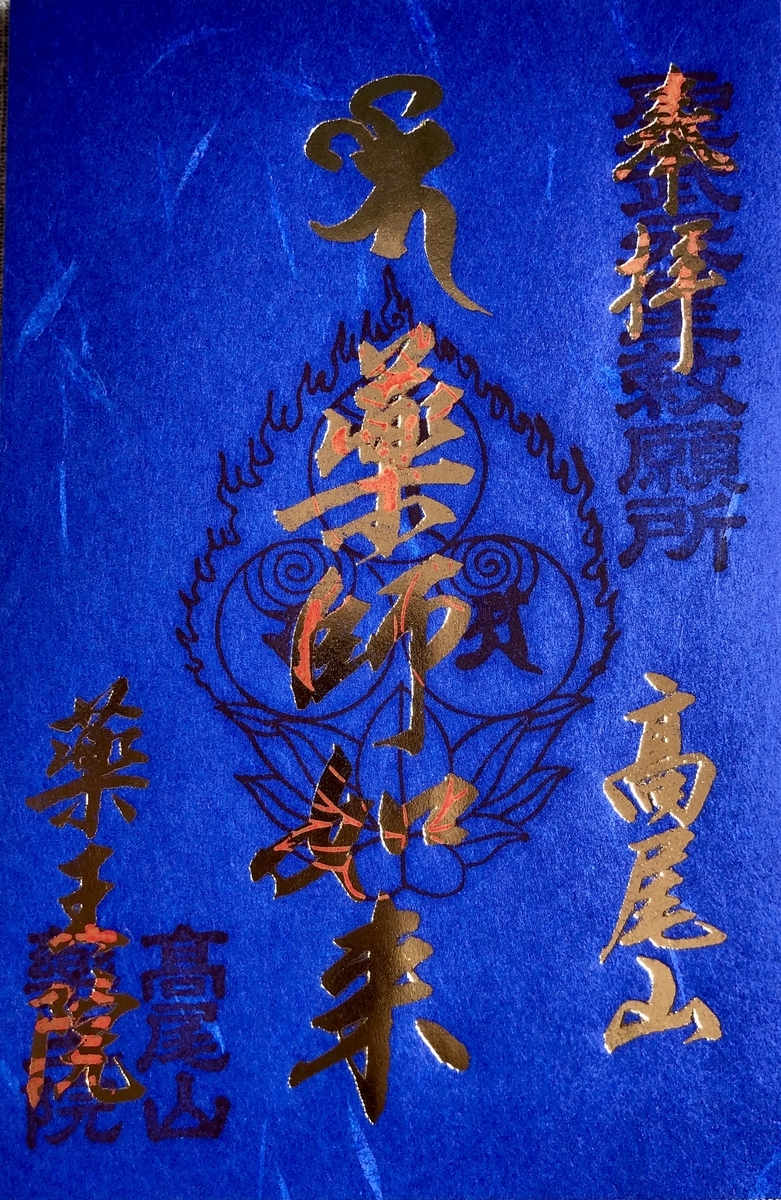 奉拝
聖武天皇敕願所
高尾山
薬師如来
高尾山
薬王院
薬王院